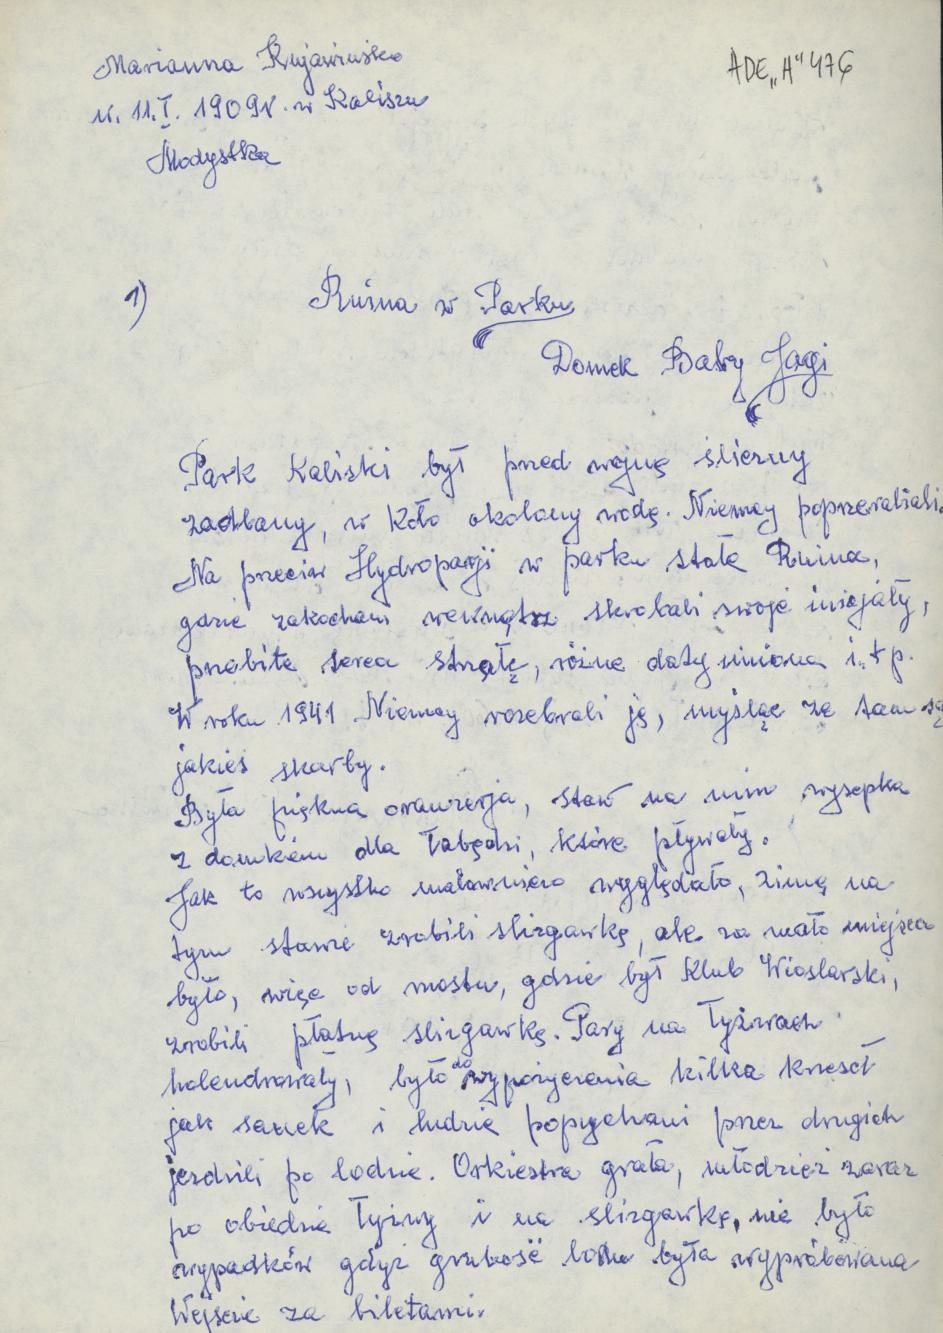 Marianna Kujawińska
ADE „A" 476
ur. 11.I. 1909r. w Kaliszu
Modystka
1)
Ruina w Parku
Domek Baby Jagi
Park Kaliski był przed wojną śliczny
zadbany, w koło okolony wodą. Niemcy poprzerabiali.
Na przeciw Hydropatji w parku stała Ruina,
gdzie zakochani wewnątrz skrobali swoje inicjały,
przebite serca strzałą, różne daty imiona i.t.p.
W roku 1941 Niemcy rozebrali ją, myśląc ze tam są
jakieś skarby.
Była piękna oranzerja, staw na nim wysepka
z domkiem dla łabędzi, które pływały.
Jak to wszystko malowniczo wyglądało, zimą na
tym stawie zrobili slizgawkę, ale za mało miejsca
było, więc od mostu, gdzie był Klub Wioslarski,
zrobili płatną slizgawkę. Pary na łyżwach
holendrowały, było do wypożyczenia kilka krzeseł
jak sanek i ludzie popychani przez drugich
jezdzili po lodzie. Orkiestra grała, młodzież zaraz
po obiedzie łyżwy i na slizgawkę, nie było
wypadków gdyż grubość lodu była wypróbowana
Wejscie za biletami.